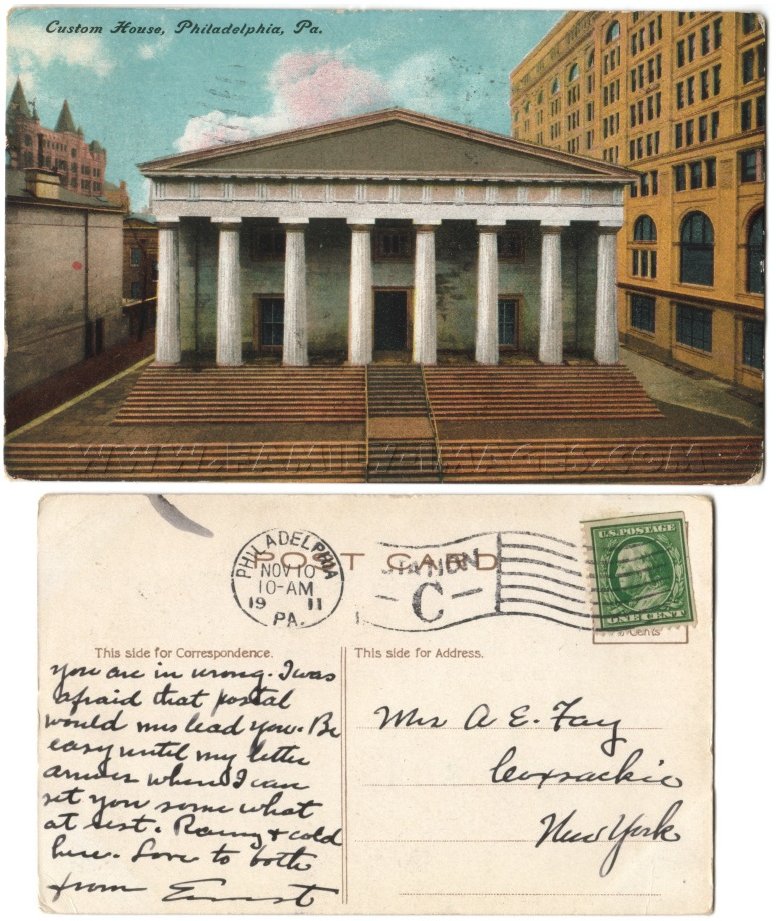 Custom House, Philadelphia, Pa.
WWW.2FAMILYIMAGES.COM
POST CARD
PHILADELPHIA
NOV 10
10-AM
19 11
PA.
STATION
C
U.S. POSTAGE
ONE CENT
Cents
This side for Correspondence.
you are in wrong. I was
afraid that postal
would mislead you. Be
easy until my letter
arrives where I can
set you some what
at rest. Rainy & cold
here. Love to both
from Ernst
This side for Address.
Mrs A E. Fay
Coxsackie
New York